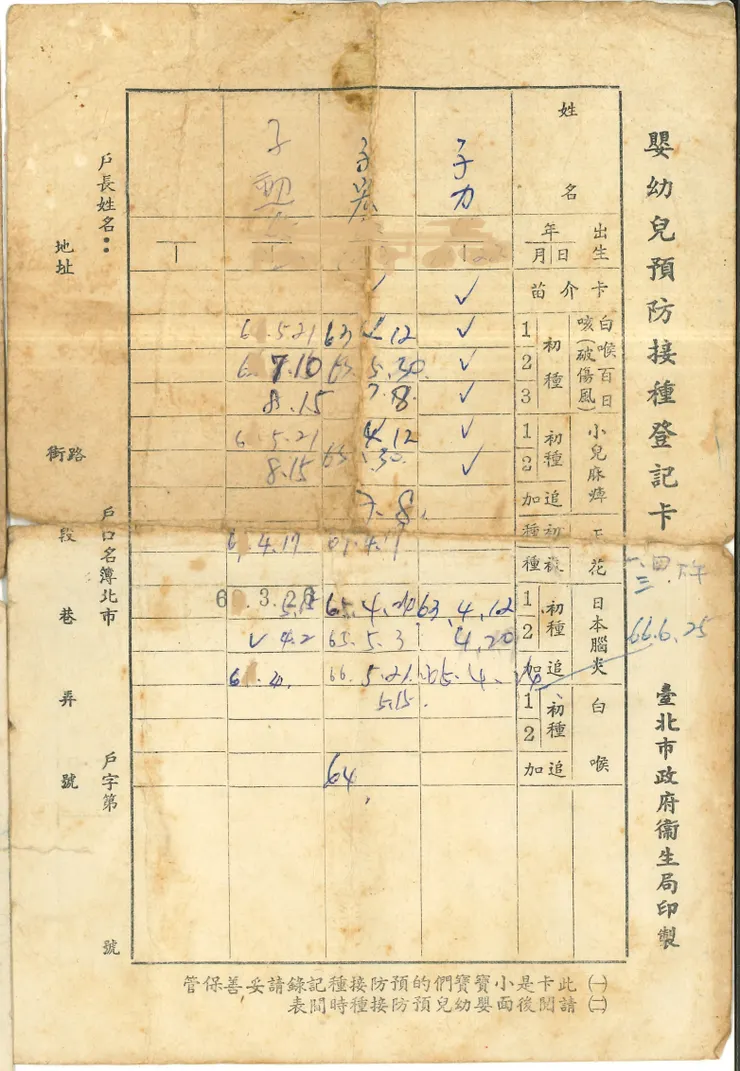 嬰幼兒預防接種登記卡
臺北市政府衞生局印製
姓名
子力
子
子
出生
年
月日
卡介苗
白喉百日咳(破傷風)
初種
1
2
3
小兒麻痺
初種
1
2
追加
天花
初種
種
日本腦炎
初種
1
2
追加
白喉
初種
1
2
追加
✓
✓
✓
✓
✓
✓
63.4.12
4.20
65.4.
✓
63 4.12
65 5.30.
7.8
4 12
65 .30.
7.8.
65.4.20
65.5.3
66.5.21.
5.15.
64
6 .5.21
6 .7.10
8.15
6 5.21
8.15
6 .4.17
6 .3.26
✓ 4.2
66.6.25
戶長姓名：
地址
街路
段
巷
弄
號
戶口名簿北市
戶字第
號
㈠ 此卡是小寶寶們的預防接種記錄請妥善保管
㈡ 請閱後面嬰幼兒預防接種時間表